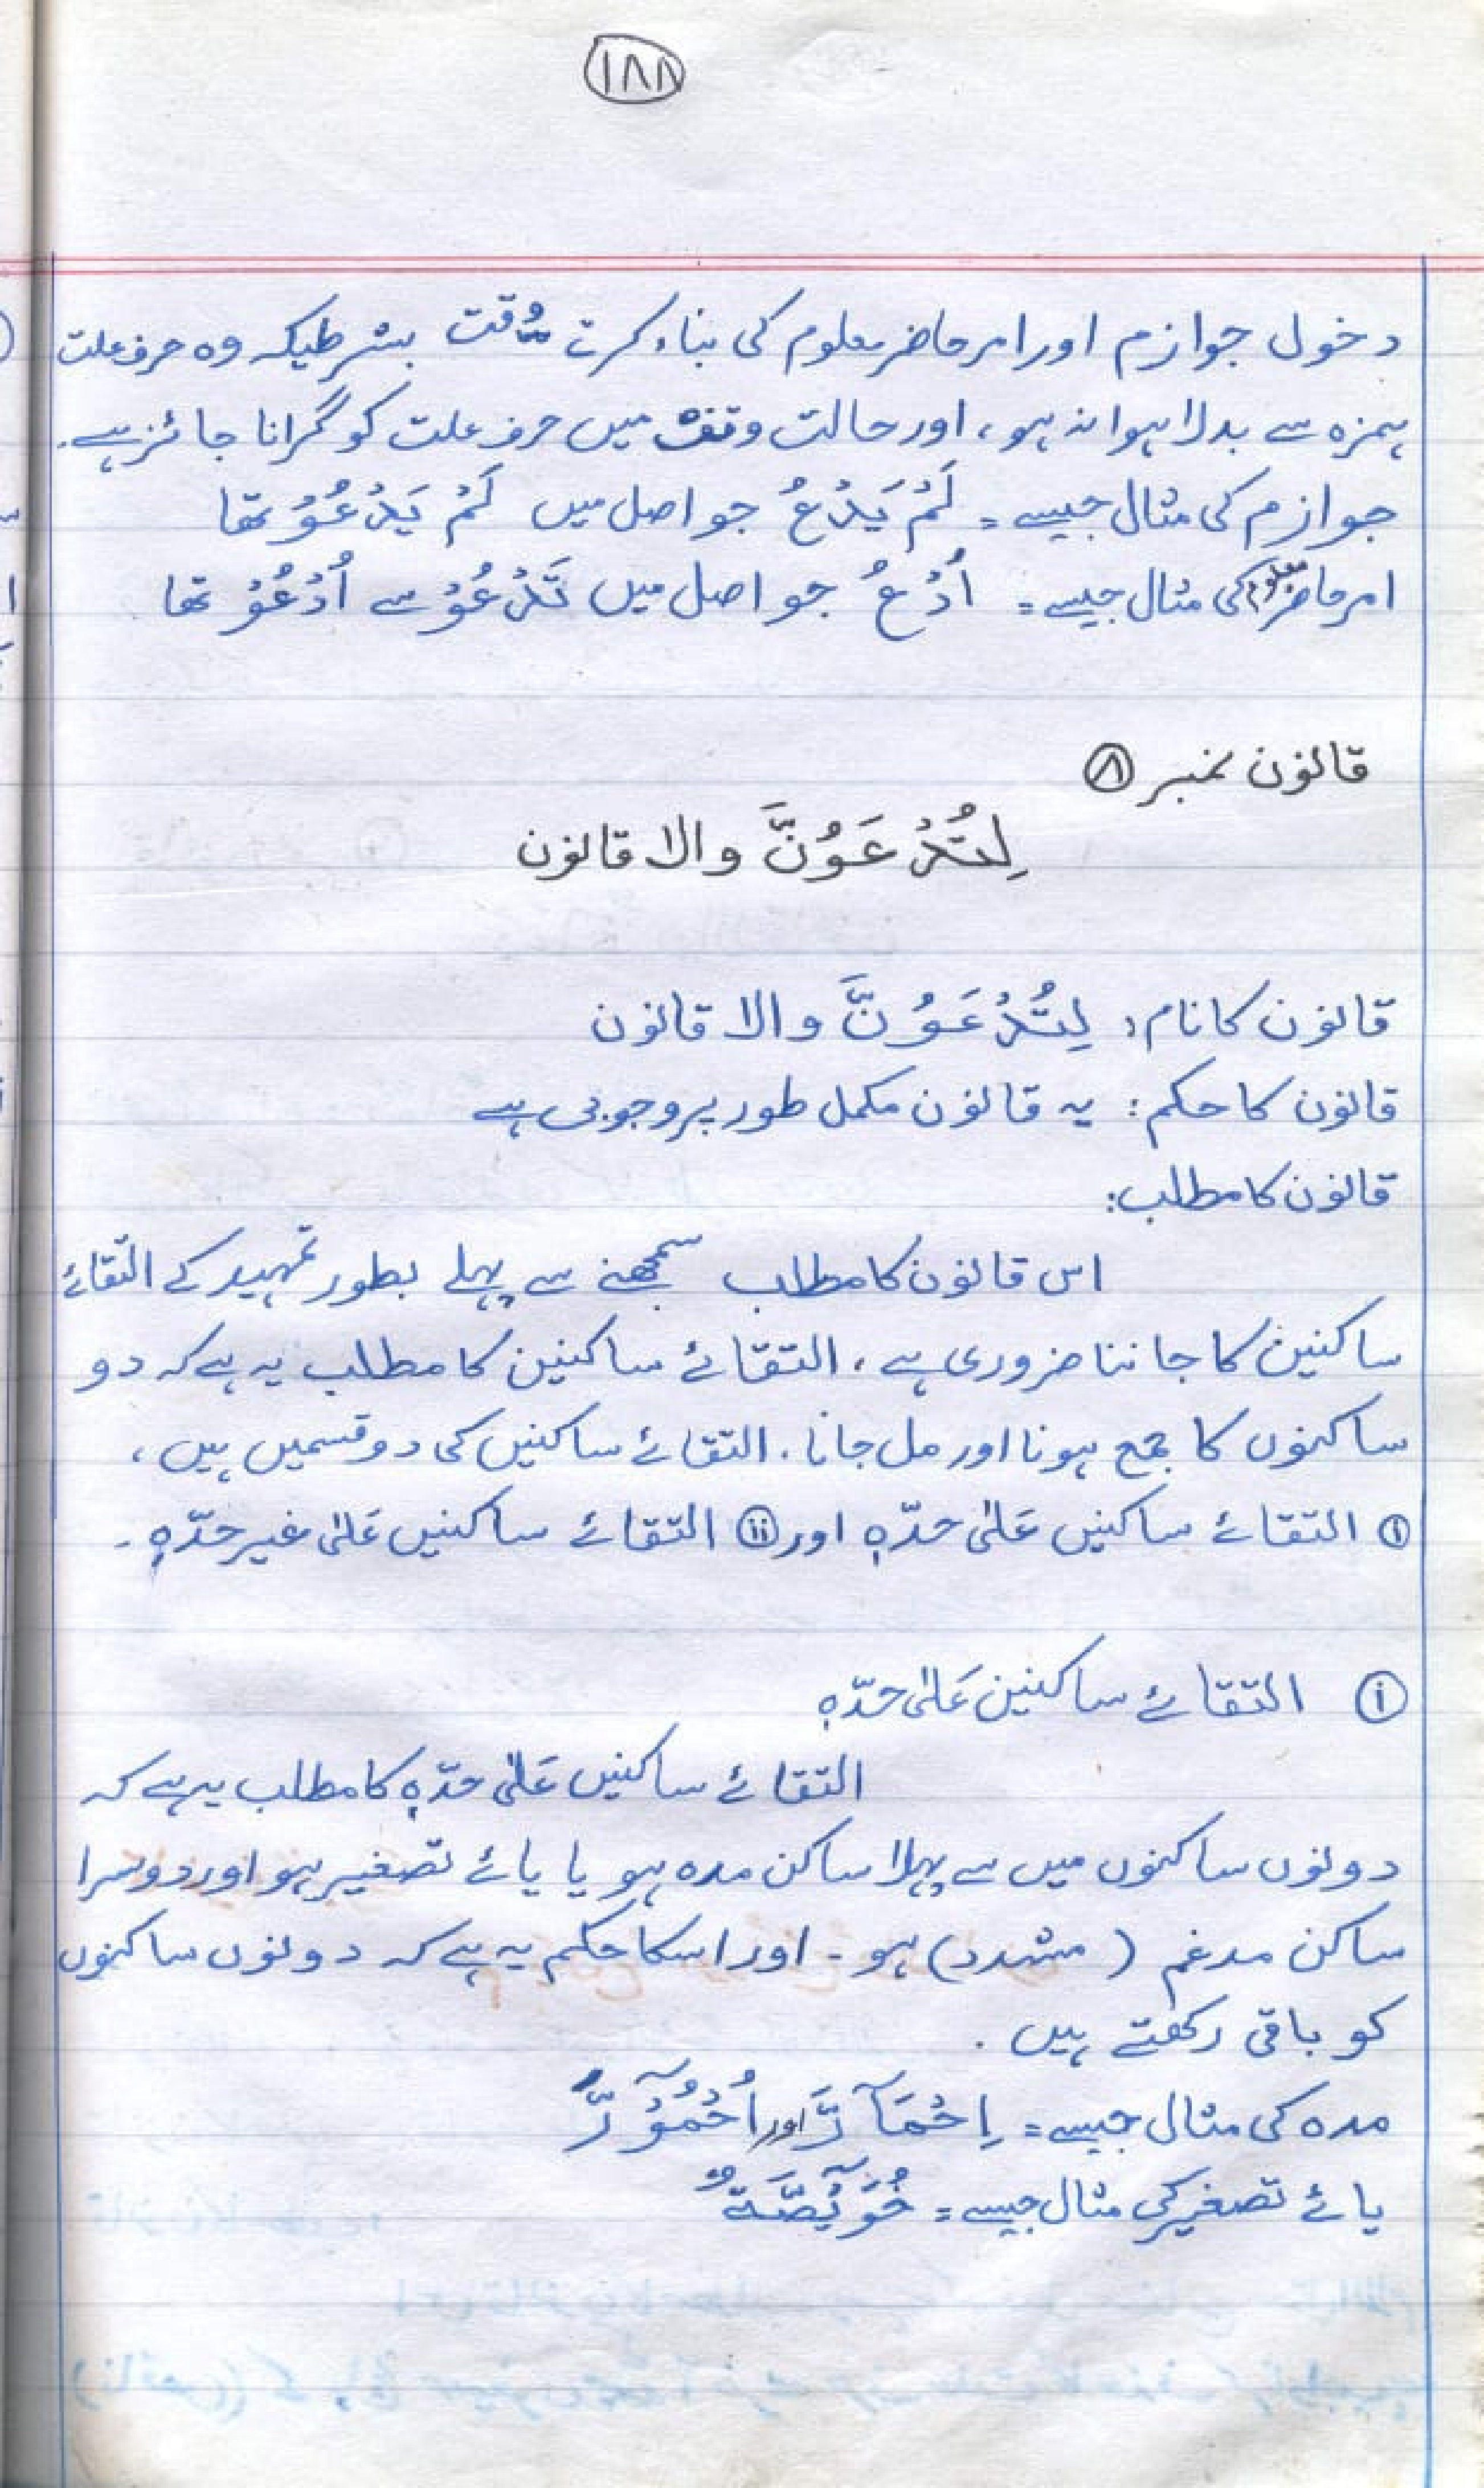 ۱۸۸
دخول جوازم اور امر حاضر معلوم کی بناء کرتے وقت بشرطیکہ وہ حرف علت
ہمزہ سے بدلا ہوا نہ ہو، اور حالت وقف میں حرف علت کو گرانا جائز ہے۔
جوازم کی مثال جیسے = لَمْ یَدْعُ جو اصل میں لَمْ یَدْعُوْ تھا
امر حاضر معلوم کی مثال جیسے = اُدْعُ جو اصل میں تَدْعُوْ سے اُدْعُوْ تھا
قانون نمبر ۸
لِتُدْعَوُنَّ والا قانون
قانون کا نام: لِتُدْعَوُنَّ والا قانون
قانون کا حکم: یہ قانون مکمل طور پر وجوبی ہے
قانون کا مطلب:
اس قانون کا مطلب سمجھنے سے پہلے بطور تمہید کے التقائے
ساکنین کا جاننا ضروری ہے، التقائے ساکنین کا مطلب یہ ہے کہ دو
ساکنوں کا جمع ہونا اور مل جانا۔ التقائے ساکنین کی دو قسمیں ہیں،
(i) التقائے ساکنین عَلیٰ حدّہٖ اور (ii) التقائے ساکنین عَلیٰ غیر حدّہٖ۔
(i) التقائے ساکنین عَلیٰ حدّہٖ
التقائے ساکنین عَلیٰ حدّہٖ کا مطلب یہ ہے کہ
دونوں ساکنوں میں سے پہلا ساکن مدہ ہو یا یائے تصغیر ہو اور دوسرا
ساکن مدغم (مشدد) ہو۔ اور اسکا حکم یہ ہے کہ دونوں ساکنوں
کو باقی رکھتے ہیں۔
مدہ کی مثال جیسے = اِحْمَآرَّ اور اُحْمُوْٓرَّ
یائے تصغیر کی مثال جیسے = خُوَیْٓصَّۃٌ